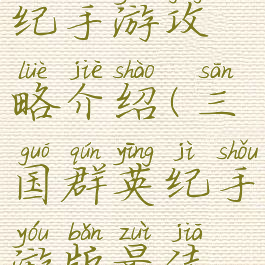 纪手游攻
lüè jiē shào sān
略介绍(三
guó qún yīng jì shǒu
国群英纪手
yóu bǎn zuì jiā
游版最佳